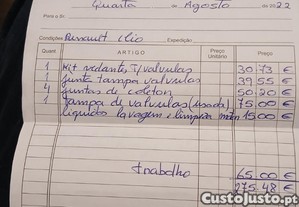 Quarta de Agosto de 2022
Para o Sr.
Condições Renault clio Expedição
Quant ARTIGO Preço Unitário Preço
1 Kit vedantes T/valvulas 30.73 €
1 junta tampa valvulas 39.55 €
4 juntas de coletor 50.20 €
1 tampa de valvulas (usada) 75.00 €
liquido lavagem e limpeza 15.00 €
trabalho 65.00 €
275.48 €
CustoJusto.pt